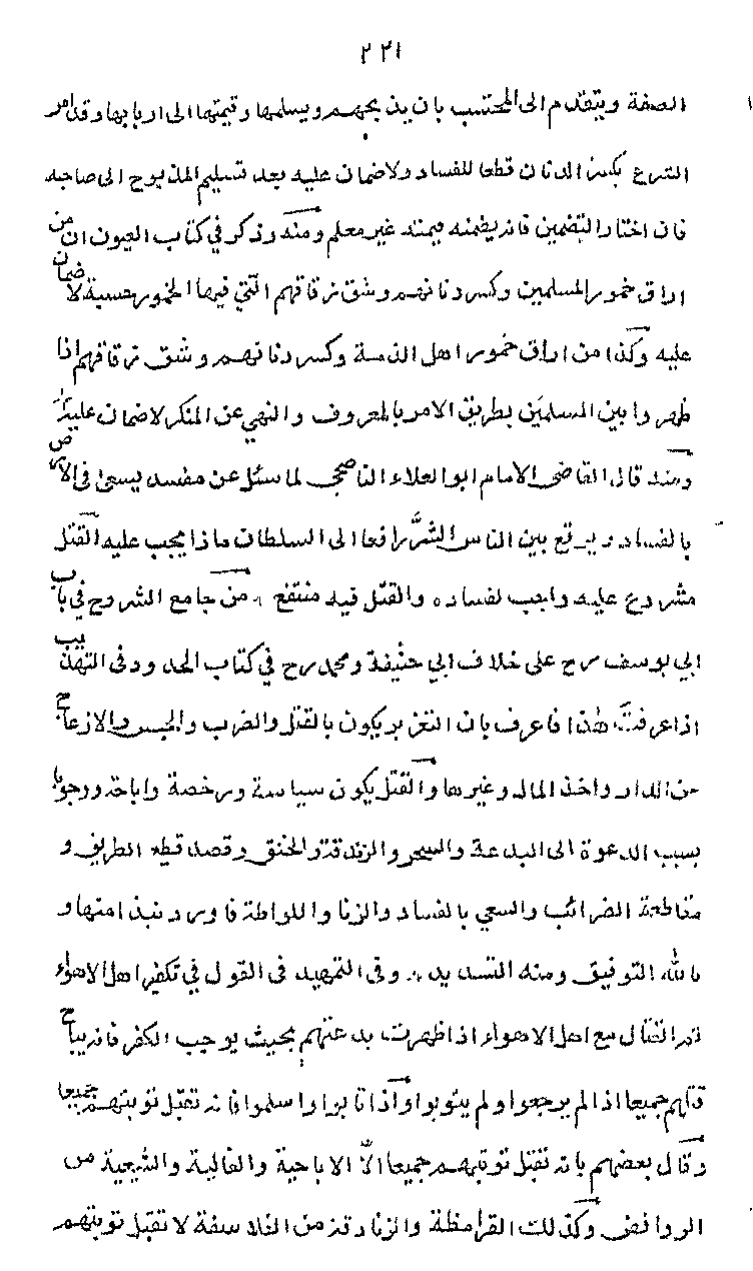 ٢٢١
الصفة ويتقدم الى المحتسب بان يذبحهم ويسلمها وقيمتها الى اربابها وقد امر
الشرع بكسر الدنان قطعا للفساد ولا ضمان عليه بعد تسليم المذبوح الى صاحبه
فان اختار التضمين فانه يضمنه قيمته غير معلم ومنه وذكر في كتاب العيون ان من
اراق خمور المسلمين وكسر دنانهم وشق زقاقهم التي فيها الخمور حسبة لا ضمان
عليه وكذا من اراق خمور اهل الذمة وكسر دنانهم وشق زقاقهم اذا
ظهروا بين المسلمين بطريق الامر بالمعروف والنهي عن المنكر لا ضمان عليه
ومنه قال القاضى الامام ابو العلاء الناصحى لما سئل عن مفسد يسعى في الارض
بالفساد ويوقع بين الناس الشر رافعا الى السلطان ماذا يجب عليه القتل
مشروع عليه واجب لفساده والقتل فيه منتفع من جامع الشروح في باب
ابي يوسف رح على خلاف ابي حنيفة ومحمد رح في كتاب الحدود وفى التهذيب
اذا عرفت هذا فاعرف بان التعزير يكون بالقتل والضرب والحبس والازعاج
عن الدار واخذ المال وغيرها والقتل يكون سياسة ورخصة واباحة ووجوبا
بسبب الدعوة الى البدعة والسحر والزندقة والخنق وقصد قطع الطريق و
مقاطعة الضرائب والسعي بالفساد والزنا واللواطة فاورد نبذا منها و
بالله التوفيق ومنه التسديد وفى التمهيد فى القول في تكفير اهل الاهواء
ان القتال مع اهل الاهواء اذا ظهرت بدعتهم بحيث يوجب الكفر فانه يباح
قتلهم جميعا اذا لم يرجعوا ولم يتوبوا واذا تابوا واسلموا فانه تقبل توبتهم جميعا
وقال بعضهم بانه تقبل توبتهم جميعا الا الاباحية والغالية والشيعية من
الروافض وكذلك القرامطة والزنادقة من الفلاسفة لا تقبل توبتهم